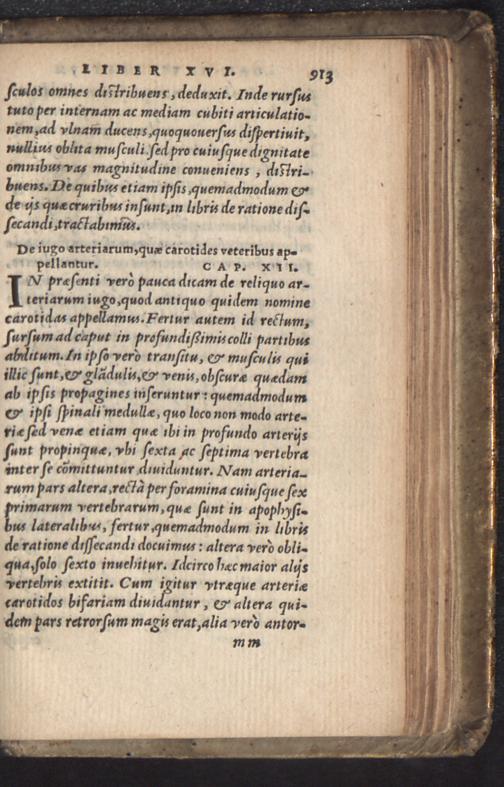 LIBER XVI. 913
ſculos omnes diſtribuens, deduxit. Inde rurſus
tuto per internam ac mediam cubiti articulatio-
nem, ad vlnam ducens, quoquouerſus diſpertiuit,
nullius oblita muſculi. ſed pro cuiuſque dignitate
omnibus vas magnitudine conueniens, diſtri-
buens. De quibus etiam ipſis, quemadmodum &
de ijs quæ cruribus inſunt, in libris de ratione diſ-
ſecandi, tractabimus.
De iugo arteriarum, quæ carotides veteribus ap-
pellantur. CAP. XII.
IN præſenti verò pauca dicam de reliquo ar-
teriarum iugo, quod antiquo quidem nomine
carotidas appellamus. Fertur autem id rectum,
ſurſum ad caput in profundißimis colli partibus
abditum. In ipſo verò tranſitu, & muſculis qui
illic ſunt, & glãdulis, & venis, obſcuræ quædam
ab ipſis propagines inſeruntur: quemadmodum
& ipſi ſpinali medullæ, quo loco non modo arte-
riæ ſed venæ etiam quæ ibi in profundo arterijs
ſunt propinquæ, vbi ſexta ac ſeptima vertebra
inter ſe cõmittuntur, diuiduntur. Nam arteria-
rum pars altera, rectà per foramina cuiuſque ſex
primarum vertebrarum, quæ ſunt in apophyſi-
bus lateralibus, fertur, quemadmodum in libris
de ratione diſſecandi docuimus: altera verò obli-
qua, ſolo ſexto inuehitur. Idcirco hæc maior alijs
vertebris extitit. Cum igitur vtræque arteriæ
carotidos bifariam diuidantur, & altera qui-
dem pars retrorſum magis erat, alia verò antor-
mm